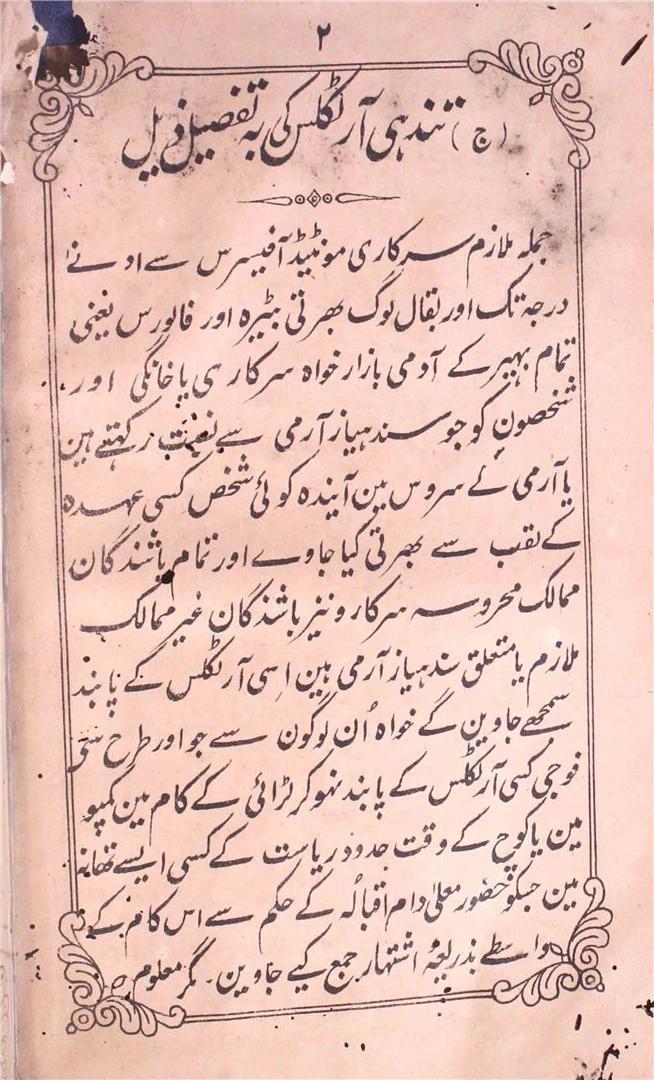 ۲
(ج) تندہی آرٹکلس کی بہ تفصیل ذیل
جملہ ملازم سرکاری مونٹیڈ آفیسرس سے اونے
درجہ تک اور بقال لوگ بھرتی بٹیرہ اور فالورس یعنی
تمام بہیر کے آدمی بازار خواہ سرکاری یا خانگی اور
شخصون کو جو سندہیاز آرمی سے نسبت رکہتے ہین
یا آرمی کے سروس مین آیندہ کوئی شخص کسی عہدہ
کے لقب سے بھرتی کیا جاوے اور تمام باشندگان
ممالک محروسہ سرکار و نیز باشندگان غیر ممالک
ملازم یا متعلق سندہیاز آرمی ہین اِسی آرٹکلس کے پابند
سمجھے جاوین گے خواہ اُن لوگون سے جو اور طرح سی
فوجی کسی آرٹکلس کے پابند نہو کر لڑائی کے کام مین کمپو
مین یا کوچ کے وقت حدود ریاست کے کسی ایسے تھانہ
مین جسکو حضور معلیٰ دام اقبالُہ کے حکم سے اس کام کے
واسطے بذریعۂ اشتہار جمع کیے جاوین۔ مگر معلوم